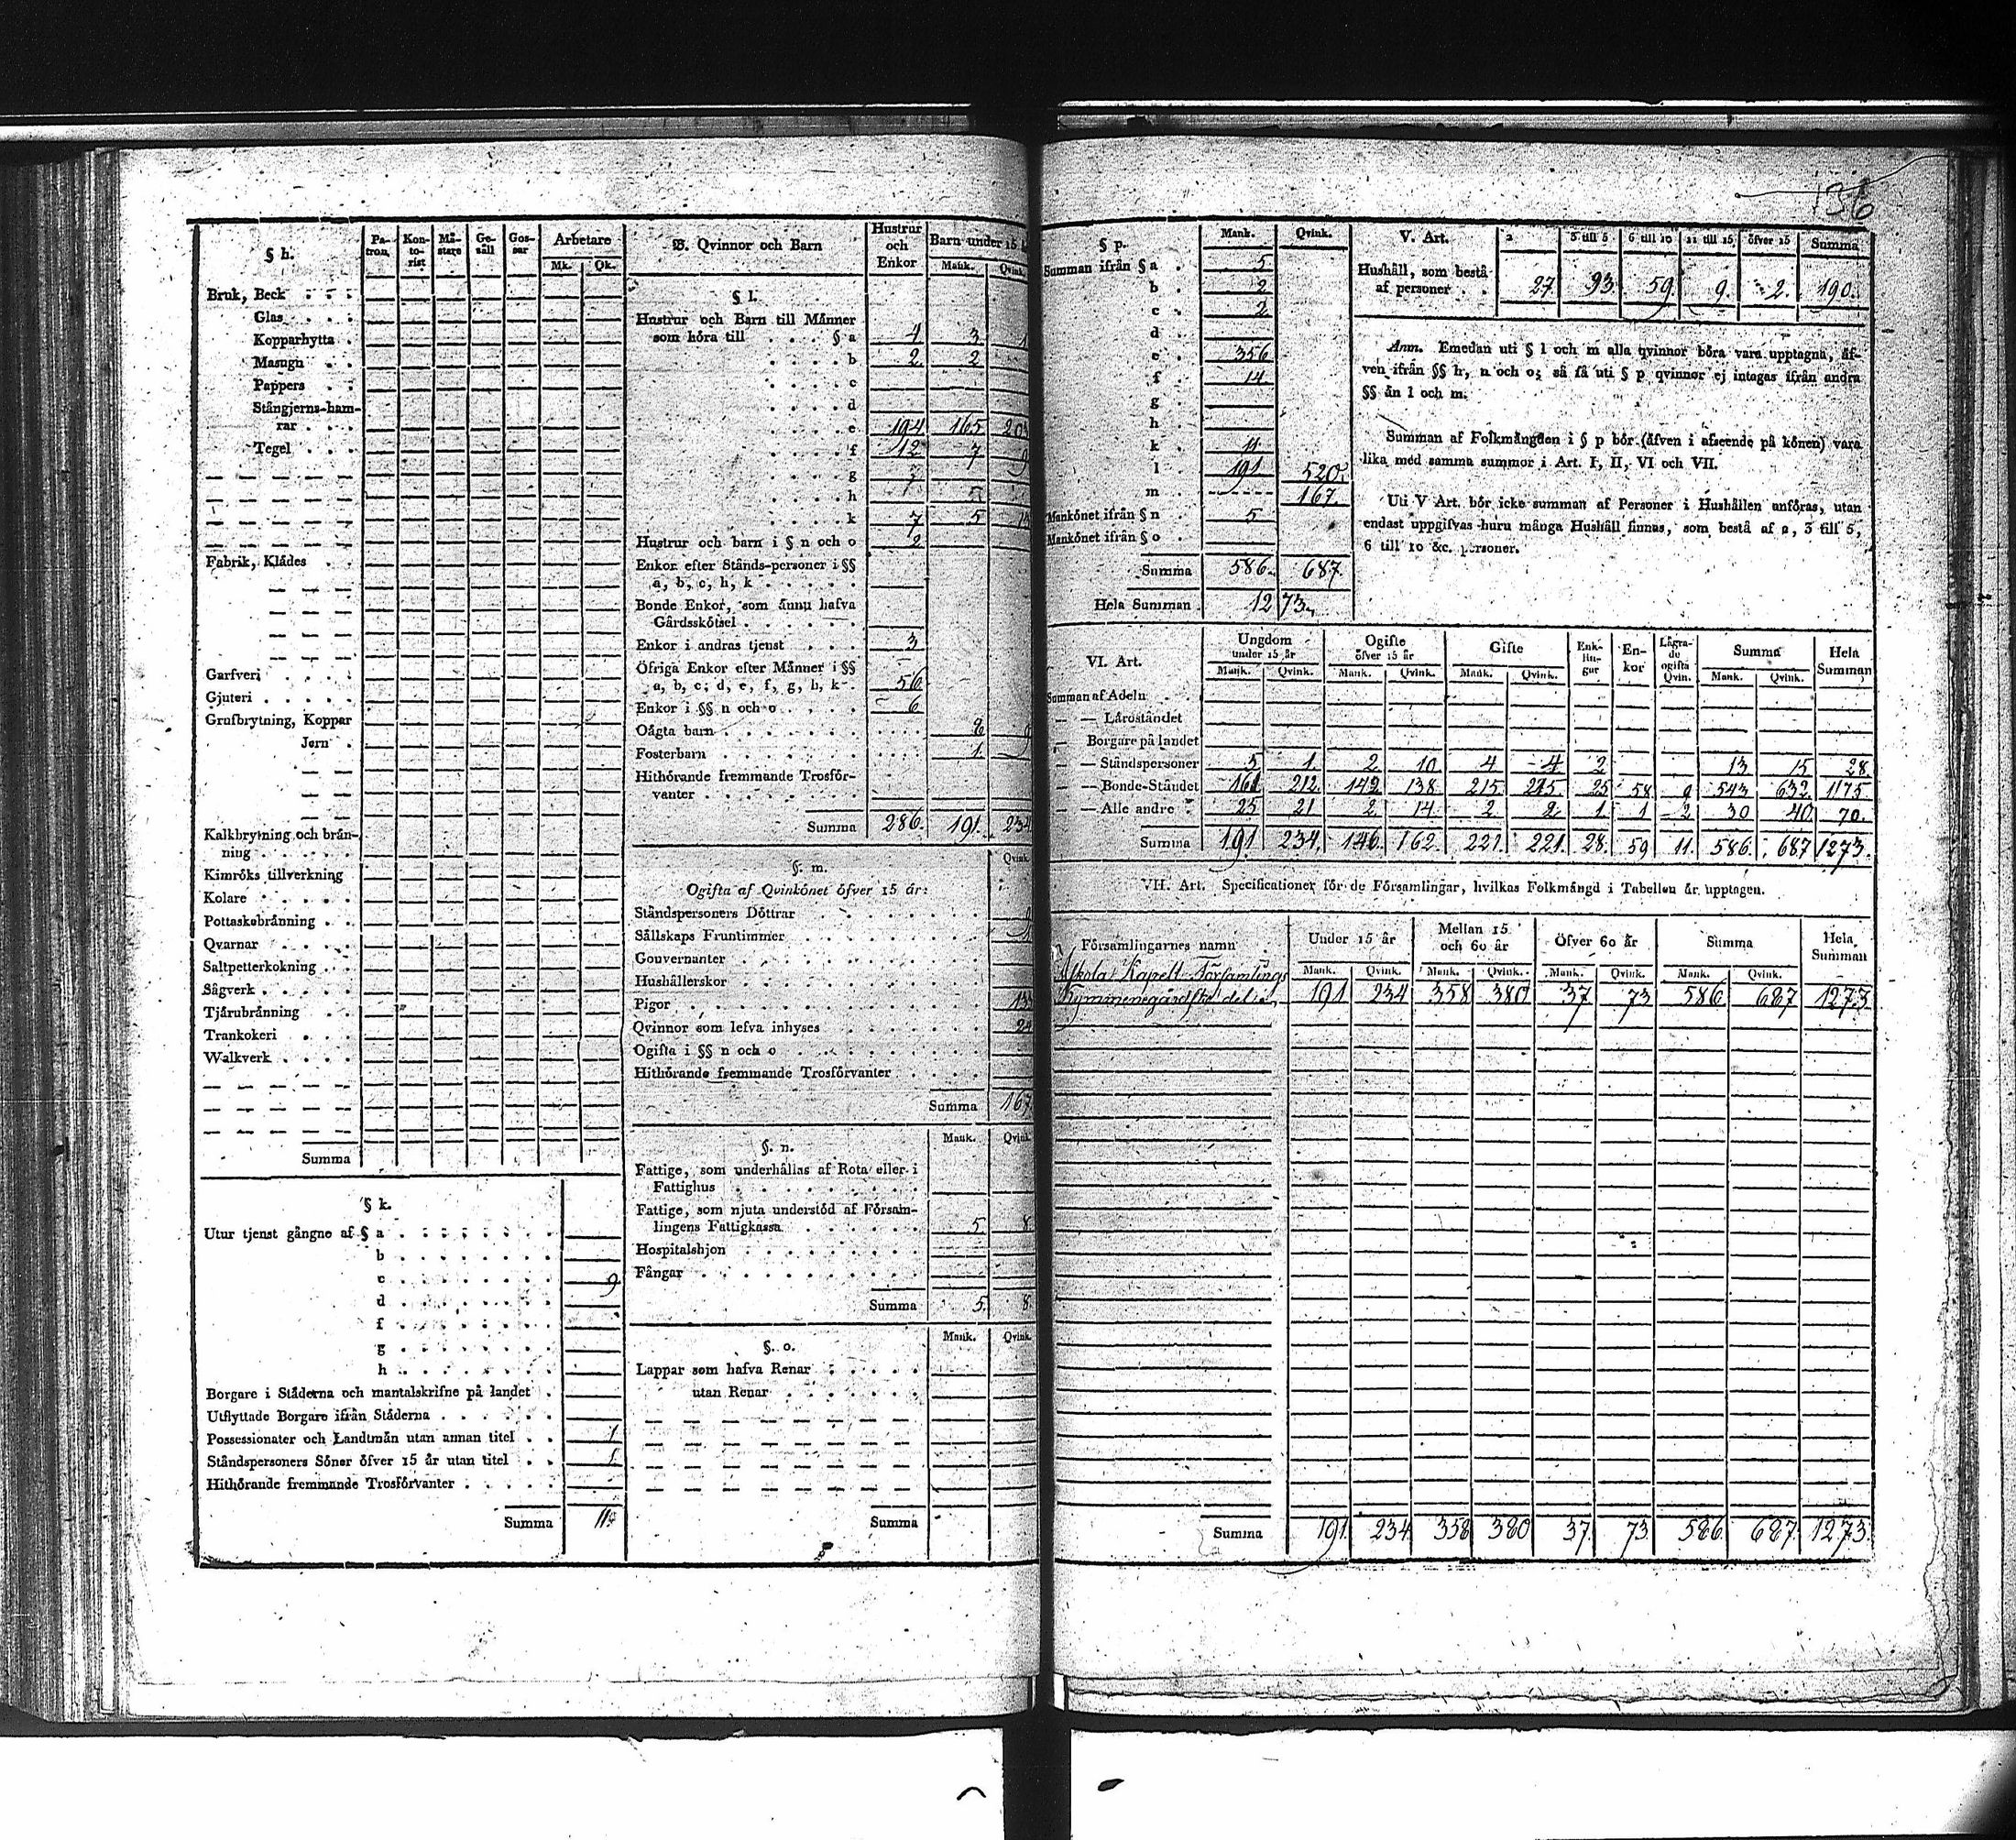 136
§ h.
Pa-tron. Kon-to-rist Må-stare Ge-säll Gos-sar Arbetare
Mk. Qk.
Bruk, Beck
Glas
Kopparhytta
Masugn
Pappers
Stångjerns-ham-
rar
Tegel
Fabrik, Klådes
Garfveri
Gjuteri
Grufbrytning, Koppar
Jern
Kalkbrytning och brän-
ning
Kimröks tillverkning
Kolare
Pottaskebränning
Qvarnar
Saltpetterkokning
Sågverk
Tjärubränning
Trankokeri
Walkverk
Summa
§ k.
Utur tjenst gångne af § a
b
c 9
d
f
g
h
Borgare i Städerna och mantalskrifne på landet
Utflyttade Borgare ifrån Städerna
Possessionater och Landtmän utan annan titel 1
Ståndspersoners Söner öfver 15 år utan titel 1
Hithörande fremmande Trosförvanter
Summa 11
B. Qvinnor och Barn Hustrur och Enkor Barn under 15
Mank. Qvink.
§ l.
Hustrur och Barn till Männer
som höra till § a 4 3 1
b 2 2
c
d
e 194 165 203
f 12 7 9
g
h
k 7 5
Hustrur och barn i § n och o 2
Enkor efter Stånds-personer i §§
a, b, c, h, k
Bonde Enkor, som ännu hafva
Gårdsskötsel
Enkor i andras tjenst 3
Öfriga Enkor efter Männer i §§
a, b, c, d, e, f, g, h, k 56
Enkor i §§ n och o 6
Oägta barn 8
Fosterbarn 1
Hithörande fremmande Trosför-
vanter
Summa 286. 191. 234
§. m. Qvink.
Ogifta af Qvinkönet öfver 15 år:
Ståndspersoners Döttrar
Sällskaps Fruntimmer
Gouvernanter
Hushållerskor
Pigor
Qvinnor som lefva inhyses
Ogifta i §§ n och o
Hithörande fremmande Trosförvanter
Summa 167
§. n. Mank. Qvink.
Fattige, som underhållas af Rota eller i
Fattighus
Fattige, som njuta understöd af Försam-
lingens Fattigkassa 5 8
Hospitalshjon
Fångar
Summa 5. 8
§. o. Mank. Qvink.
Lappar som hafva Renar
utan Renar
Summa
§ p. Mank. Qvink.
Summan ifrån § a 5
b 2
c 2
d
e 356
f 14
g
h
k 11
l 191 520
m 167.
Mankönet ifrån § n 5
Mankönet ifrån § o
Summa 586. 687.
Hela Summan 1273.
V. Art. 2 3 till 5 6 till 10 11 till 15 öfver 15 Summa
Hushåll, som bestå
af personer 27 93 59 9. 2. 190.
Anm. Emedan uti § l och m alla qvinnor böra vara upptagna, äf-
ven ifrån §§ h, n och o; så få uti § p qvinnor ej intagas ifrån andra
§§ än l och m.
Summan af Folkmängden i § p bör (äfven i afseende på könen) vara
lika med samma summor i Art. I, II, VI och VII.
Uti V Art. bör icke summan af Personer i Hushållen anföras, utan
endast uppgifvas huru många Hushåll finnas, som bestå af 2, 3 till 5,
6 till 10 &c. personer.
VI. Art. Ungdom under 15 år Ogifte öfver 15 år Gifte Enk-lin-gar En-kor Lägra-de ogifta Qvin. Summa Hela Summan
Mank. Qvink. Mank. Qvink. Mank. Qvink. Mank. Qvink.
Summan af Adeln
— — Läroståndet
— Borgare på landet
— — Ståndspersoner 5 1. 2 10 4 4 2 13 15 28.
— — Bonde-Ståndet 161 212. 142 138 215 215 25 58 9 543 632 1175
— — Alle andre 25 21 2 14 2 2 1 1 2 30 40 70.
Summa 191 234. 146. 162. 221. 221. 28. 59 11. 586 687 1273.
VII. Art. Specificationer för de Församlingar, hvilkas Folkmängd i Tabellen är upptagen.
Församlingarnes namn Under 15 år Mellan 15 och 60 år Öfver 60 år Summa Hela Summan
Mank. Qvink. Mank. Qvink. Mank. Qvink. Mank. Qvink.
Kapell Församlings
Kymmenegårdske delen 191 234 358 380 37 73 586 687 1273
Summa 191. 234 358 380 37. 73. 586 687. 1273.